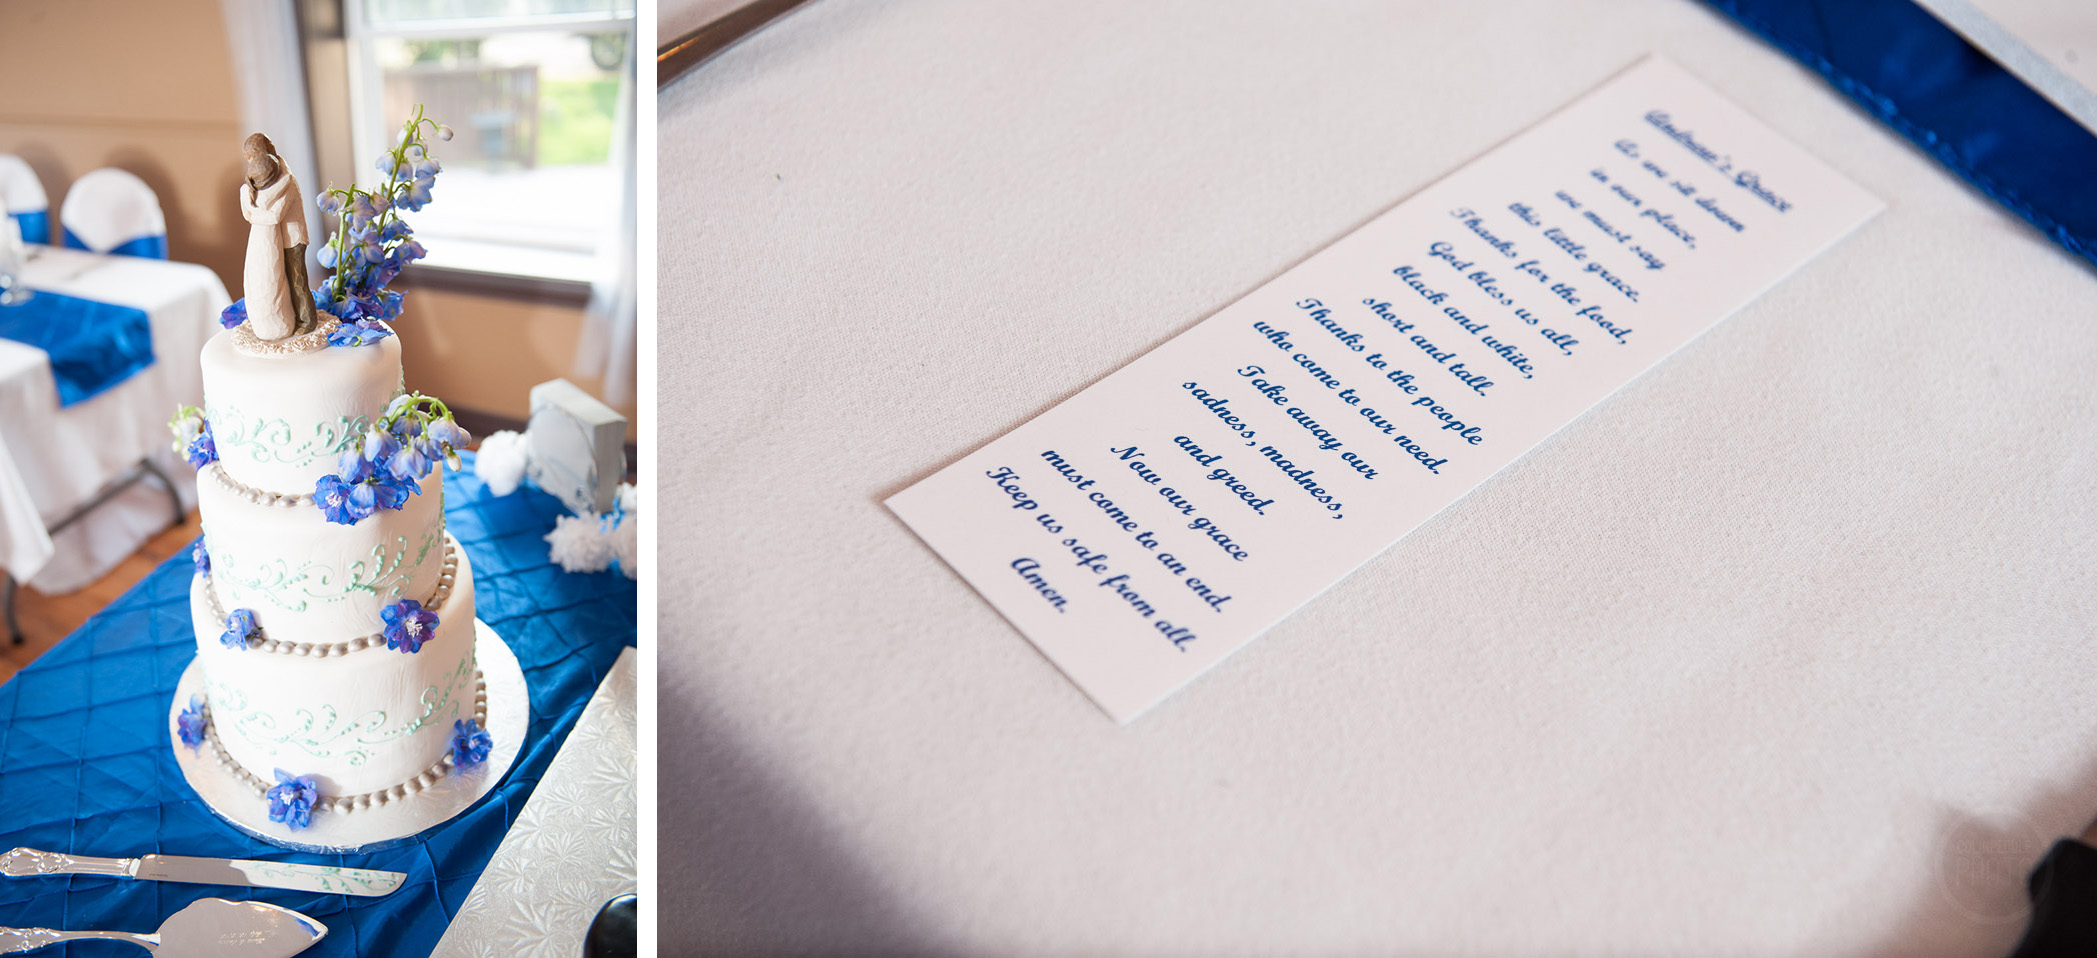 Grace
As we sit down
in our place,
we must say
this little grace.
Thanks for the food,
God bless us all,
black and white,
short and tall.
Thanks to the people
who come to our need.
Take away our
sadness, madness,
and greed.
Now our grace
must come to an end.
Keep us safe from all.
Amen.